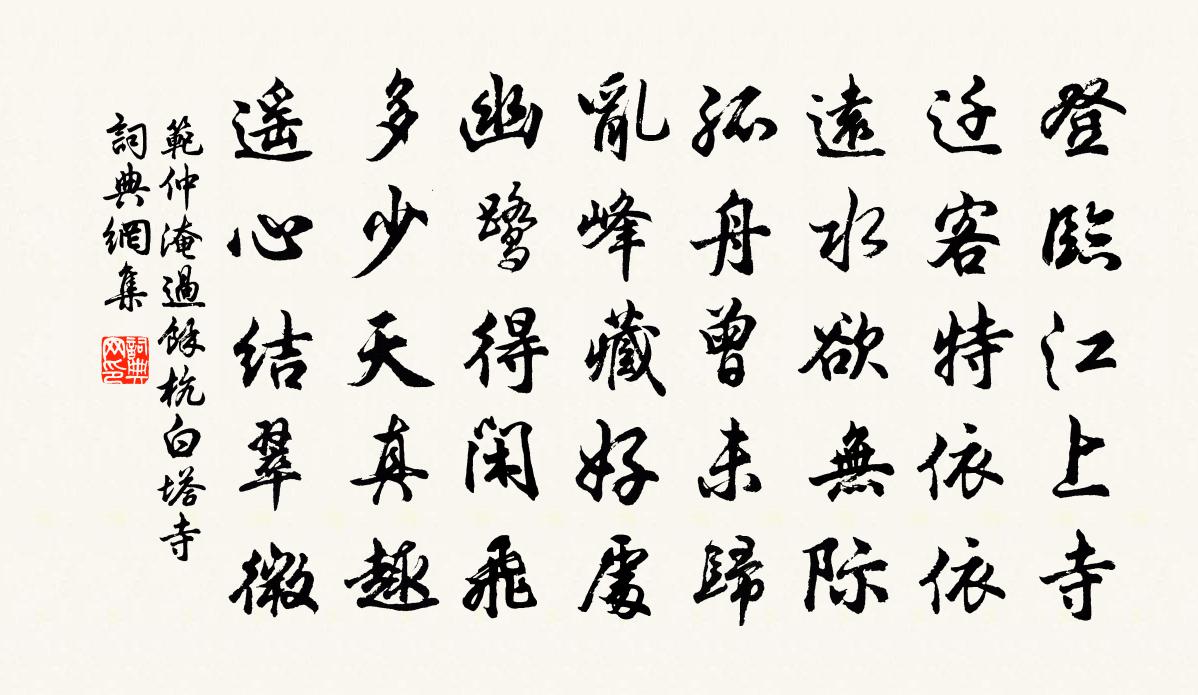 登臨江上寺
迁客特依依
遠水欲無际
孤舟曾未歸
亂峰藏好處
幽鷺得閑飛
多少天真趣
遥心结翠微
範仲淹過餘杭白塔寺
詞典網集
詞典网印